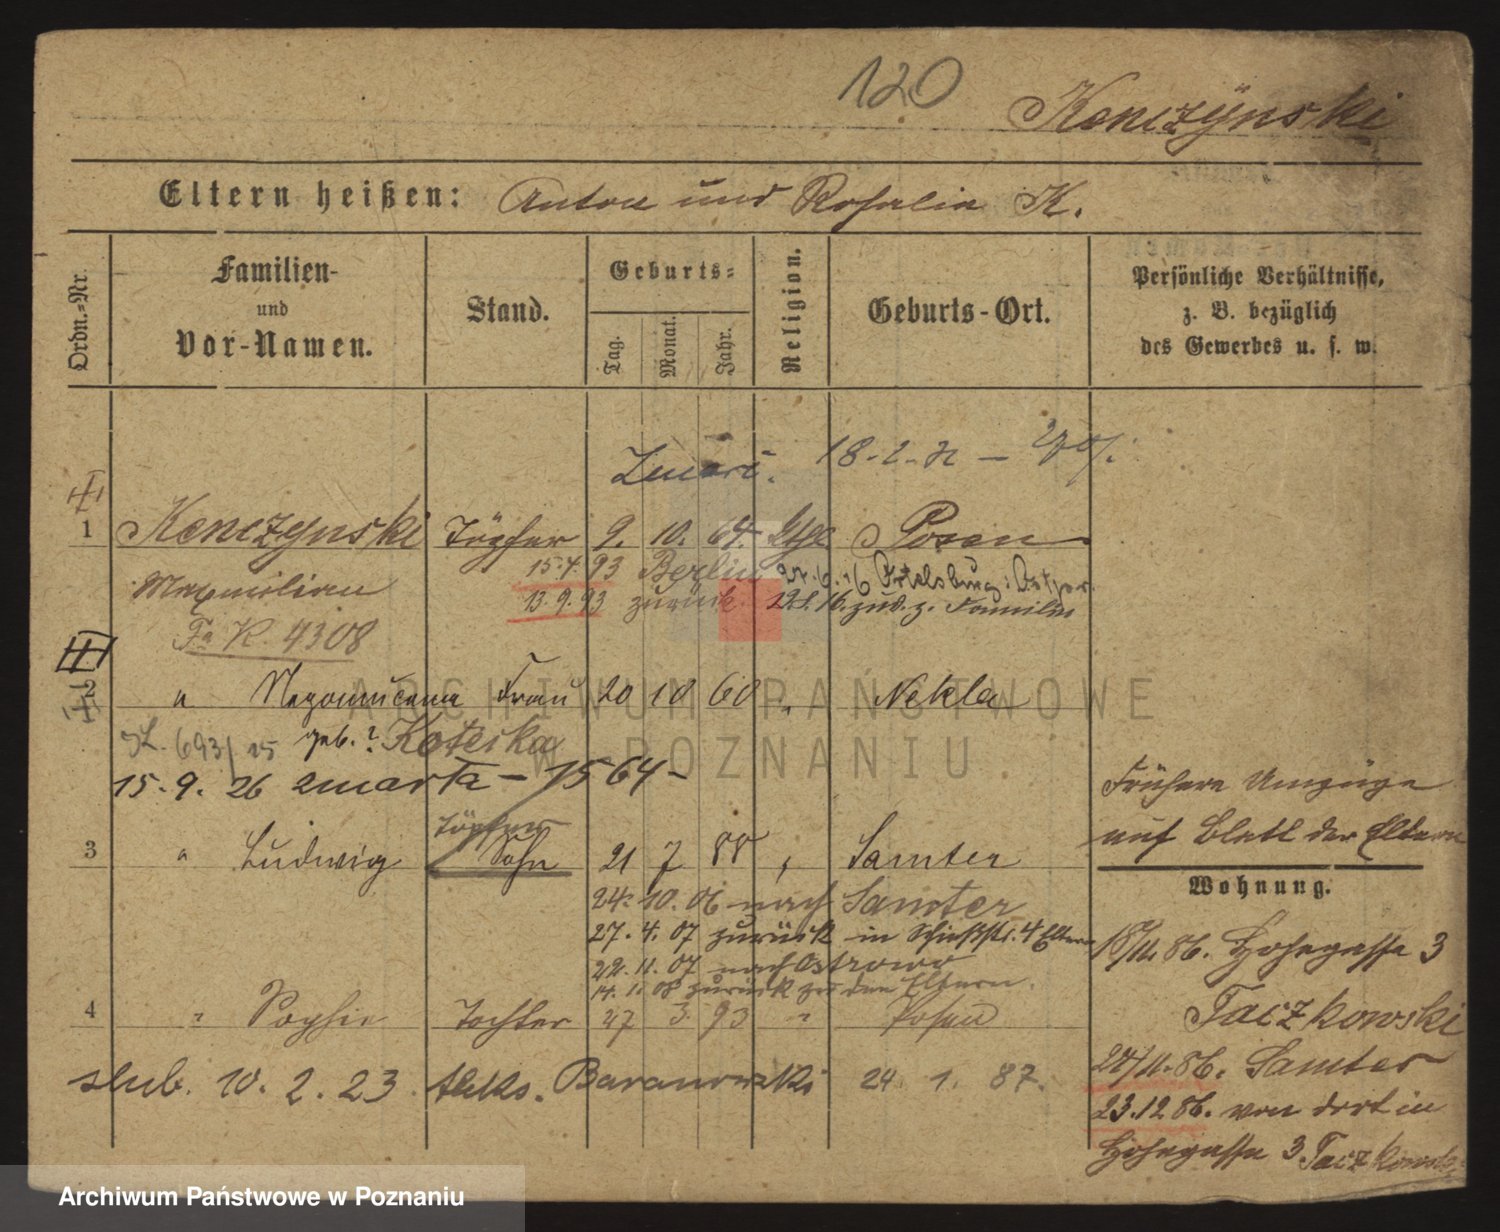 120
Kenczÿnski
Eltern heißen: Anton und Rosalia K.
Ordn.-Nr.
Familien-
und
Vor-Namen.
Stand.
Geburts=
Tag.
Monat.
Jahr.
Religion.
Geburts-Ort.
Persönliche Verhältnisse,
z. B. bezüglich
des Gewerbes u. s. w.
18.2.
1 Kenczynski Töpfer 9. 10. 64. Kth Posen
Maxmilian
15.4.93 Berlin 27.6.16 Ortelsburg i. Ostpr.
13.9.93 zurück 16. zur. z. Familie
Fa K. 4308
" Nepomucena Frau 20 10 60 " Nekla
693/15 geb. ? Koteska
15.9.26 zmarła - 1564 -
Frühere Umzüge
auf Blatt der Eltern
Töpfer
3 " Ludwig Sohn 21 7 88 " Samter
Wohnung.
24. 10. 06 nach Samter
27. 4. 07 zurück in Schießstr. 4 Eltern
22. 11. 07 nach Ostrowo
14. 1. 08 zurück zu den Eltern.
18/11. 86. Hohegasse 3
Taczkowski
4 " Sophie Tochter 27 3. 93 " Posen
27/11. 86. Samter
slub. 10. 2. 23. Aleks. Baranowski 24. 1. 87.
23.12.86. von dort in
Hohegasse 3 Taczkowski
ARCHIWUM PAŃSTWOWE
W POZNANIU
Archiwum Państwowe w Poznaniu